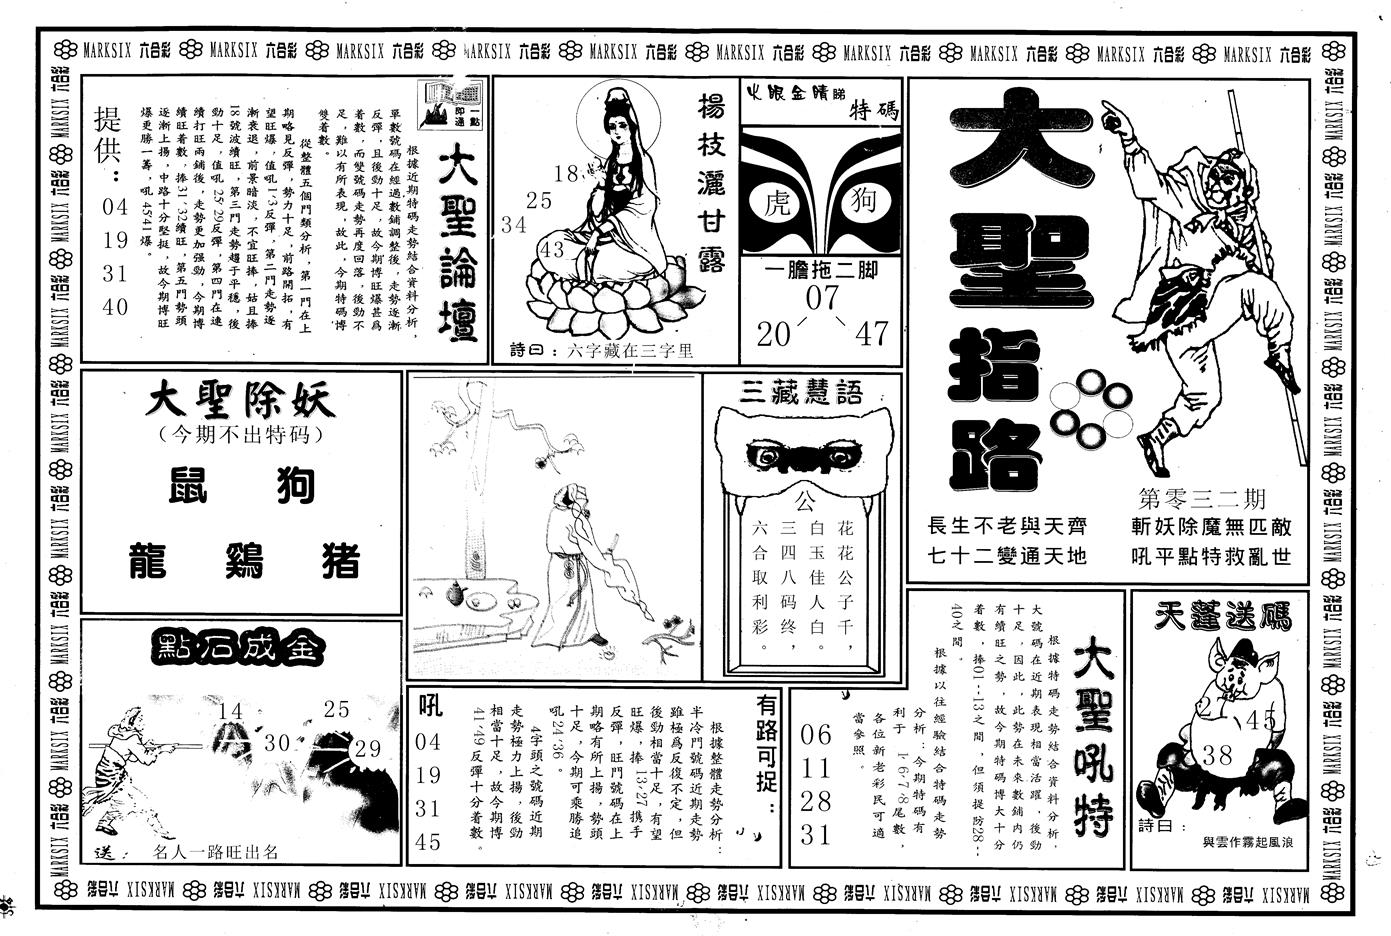 MARKSIX 六合彩 MARKSIX 六合彩 MARKSIX 六合彩 MARKSIX 六合彩 MARKSIX 六合彩 MARKSIX 六合彩 MARKSIX 六合彩 MARKSIX 六合彩 MARKSIX 六合彩 MARKSIX 六合彩
大聖指路
第零三二期
長生不老與天齊
七十二變通天地
斬妖除魔無匹敵
吼平點特救亂世
火眼金睛睇
特碼
虎
狗
一膽拖二脚
07
20
47
楊枝灑甘露
18
25
34
43
詩曰：六字藏在三字里
一點即通
大聖論壇
根據近期特碼走勢結合資料分析，
單數號碼在經過數鋪調整後，走勢逐漸
反彈，且後勁十足，故今期博旺爆甚爲
着數，而雙號碼走勢再度回落，後勁不
足，難以有所表現，故此，今期特碼博
雙着數。
從整體五個門類分析，第一門在上
期略見反彈，勢力十足，前路開拓，有
望旺爆，值吼1·3反彈，第二門走勢逐
漸衰退，前景暗淡，不宜旺捧，姑且捧
18號波續旺，第三門走勢趨于平穩，後
勁十足，值吼25·29反彈，第四門在連
續打旺兩鋪後，走勢更加强勁，今期博
續旺着數，捧31·32續旺，第五門勢頭
逐漸上揚，中路十分堅挺，故今期博旺
爆更勝一籌，吼45·41爆。
提供：
04
19
31
40
大聖除妖
（今期不出特码）
鼠 狗
龍 鷄 猪
三藏慧語
公
花花公子千，
白玉佳人白。
三四八码终，
六合取利彩。
點石成金
14
25
30
29
送：
名人一路旺出名
有路可捉：
根據整體走勢分析：
半冷門號碼近期走勢
雖極爲反復不定，但
後勁相當十足，有望
旺爆，捧13·27携手
反彈，旺門號碼在上
期略有所上揚，勢頭
十足，今期可乘勝追
吼24·36。
4字頭之號碼近期
走勢極力上揚，後勁
相當十足，故今期博
41·49反彈十分着數。
吼
04
19
31
45
大聖吼特
根據特碼走勢結合資料分析，
大號碼在近期表現相當活躍，後勁
十足，因此，此勢在未來數鋪内仍
有續旺之勢，故今期特碼博大十分
着數，捧01--13之間，但須提防28--
40之間。
根據以往經驗結合特碼走勢
分析：今期特碼有
利于 1·6·7·8尾數，
各位新老彩民可適
當參照。
06
11
28
31
天蓬送碼
45
38
詩曰：
與雲作霧起風浪
MARKSIX 六合彩 MARKSIX 六合彩 MARKSIX 六合彩 MARKSIX 六合彩 MARKSIX 六合彩 MARKSIX 六合彩 MARKSIX 六合彩 MARKSIX 六合彩 MARKSIX 六合彩 MARKSIX 六合彩